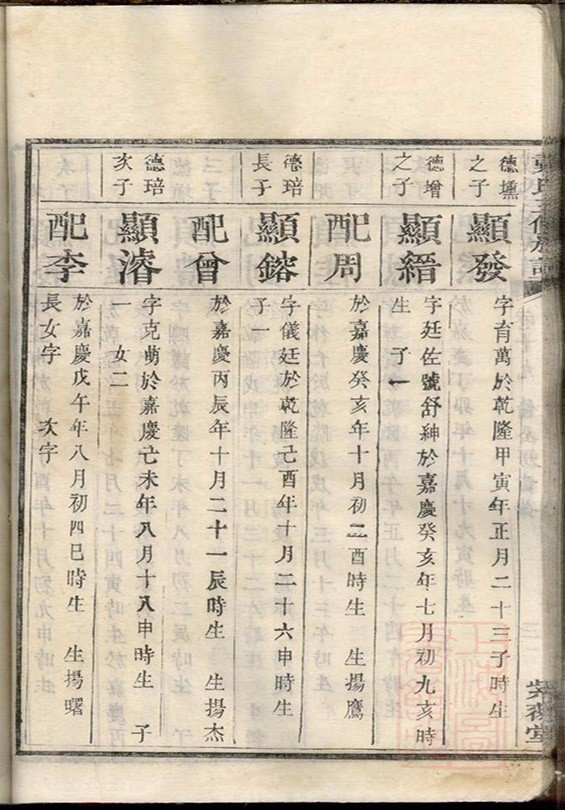 德壎
之子
顯發
字育萬於乾隆甲寅年正月二十三子時生
德增
之子
顯縉
字廷佐號舒紳於嘉慶癸亥年七月初九亥時
生 子一
配周
於嘉慶癸亥年十月初二酉時生 生揚鷹
德琣
長子
顯鎔
字儀廷於乾隆己酉年十月二十六申時生
子一
配曾
於嘉慶丙辰年十月二十一辰時生 生揚杰
德琣
次子
顯濬
字克萌於嘉慶己未年八月十八申時生 子
一 女二
配李
於嘉慶戊午年八月初四巳時生 生揚曙
長女字 次字